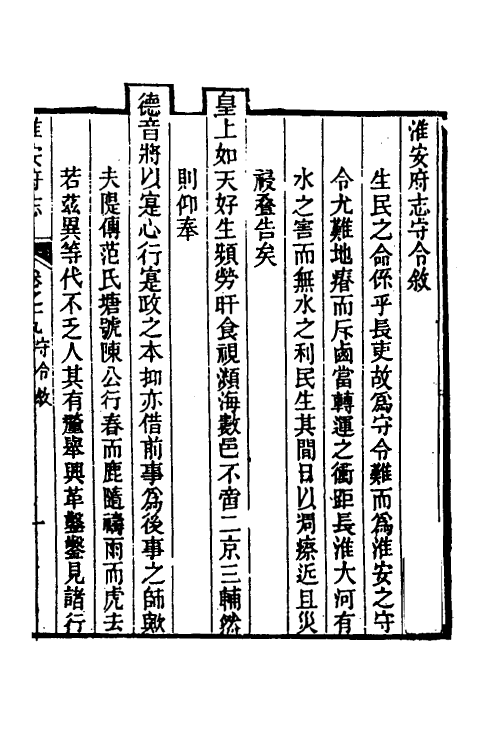 淮安府志守令敘
生民之命係乎長吏故為守令難而為淮安之守
令尤難地瘠而斥鹵當轉運之衝距長淮大河有
水之害而無水之利民生其間日以凋瘵近且災
祲叠告矣
皇上如天好生頻勞旰食視瀕海數邑不啻二京三輔然
則仰奉
德音將以寔心行寔政之本抑亦借前事為後事之師歟
夫隄傳范氏塘號陳公行春而鹿隨禱雨而虎去
若茲異等代不乏人其有釐舉興革鑿鑿見諸行
淮安府志
卷之十九守令敘
一